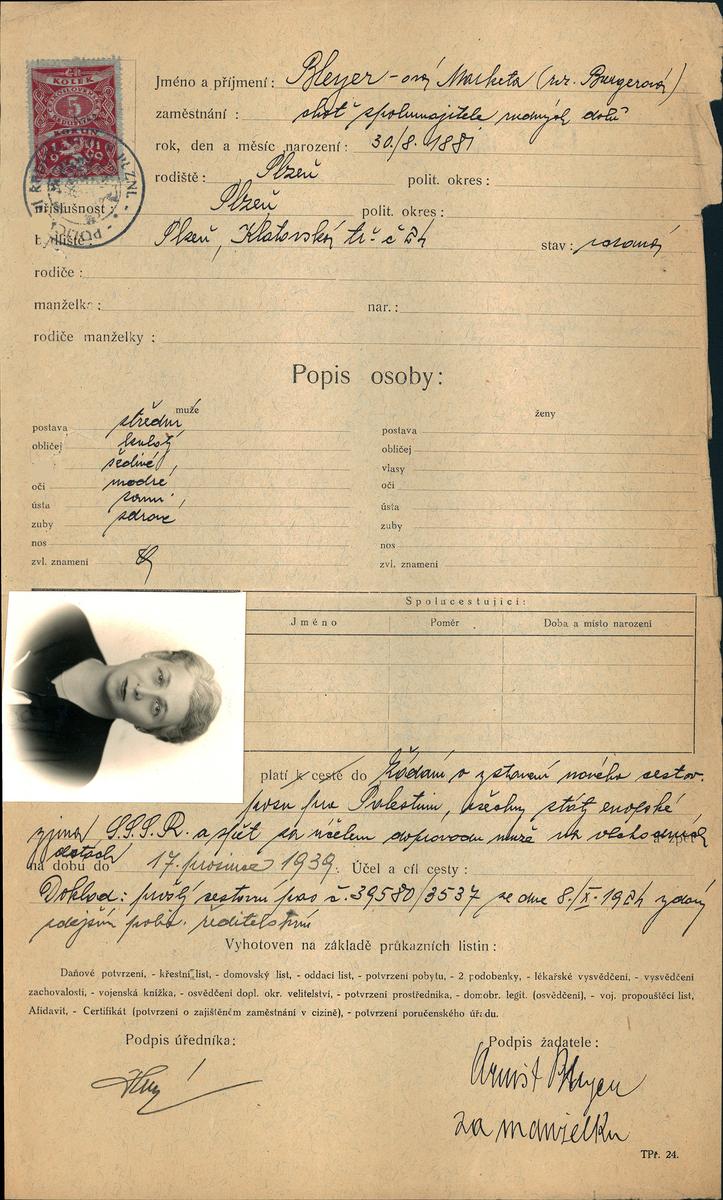 KOLEK
5
KORUN
Jméno a příjmení : Bleyer-ová Marketa (roz. Burgerová)
zaměstnání : choť spolumajitele rudných dolů
rok, den a měsíc narození : 30./8. 1881
rodiště : Plzeň polit. okres :
příslušnost : Plzeň polit. okres :
Plzeň, Klatovská tř. č. stav :
rodiče :
manželka : nar. :
rodiče manželky :
Popis osoby :
muže ženy
postava střední postava
obličej kulatý obličej
šedivé vlasy
oči modré oči
ústa ústa
zuby zdravé zuby
nos nos
zvl. znamení zvl. znamení
Spolucestující :
Jméno Poměr Doba a místo narození
platí k cestě do Žádání o vystavení nového cestov.
pasu pro Palestinu, všechny státy evropské
S.S.S.R. a zpět za účelem doprovodu muže na a zpět
na dobu do 17. prosince 1939. Účel a cíl cesty :
Doklad : prošlý cestovní pas č. 39580/3537 ze dne 8./X. vydaný
zdejším polic. ředitelstvím
Vyhotoven na základě průkazních listin :
Daňové potvrzení, - křestní list, - domovský list, - oddací list, - potvrzení pobytu, - 2 podobenky, - lékařské vysvědčení, - vysvědčení
zachovalosti, - vojenská knížka, - osvědčení dopl. okr. velitelství, - potvrzení prostředníka, - domobr. legit. (osvědčení), - voj. propouštěcí list,
Afidavit, - Certifikát (potvrzení o zajištěném zaměstnání v cizině), - potvrzení poručenského úřadu.
Podpis úředníka : Podpis žadatele :
Arnošt Bleyer
za manželku
TPř. 24.